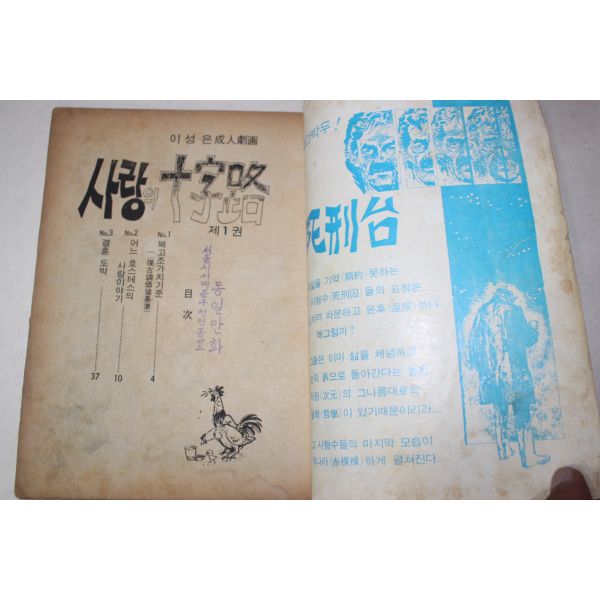 이성은 成人劇画
사랑의 十字路
제1권
目次
No.1 복고조가치기준
(復古調価値基準) 4
No.2 어느 호스테스의
사랑이야기 10
No.3 결혼 도박 37
동일만화
死刑台
기약(期約) 못하는
사형수(死刑囚)들의 표정은
차분하고 온후(温厚)하나
왜그럴까?
들은 이미 삶을 체념하고
흙으로 돌아간다는
(次元)의 그나름대로의
(哲學)이 있기때문이리라...
그 사형수들의 마지막 모습이
나라(赤裸裸)하게 펼쳐진다.